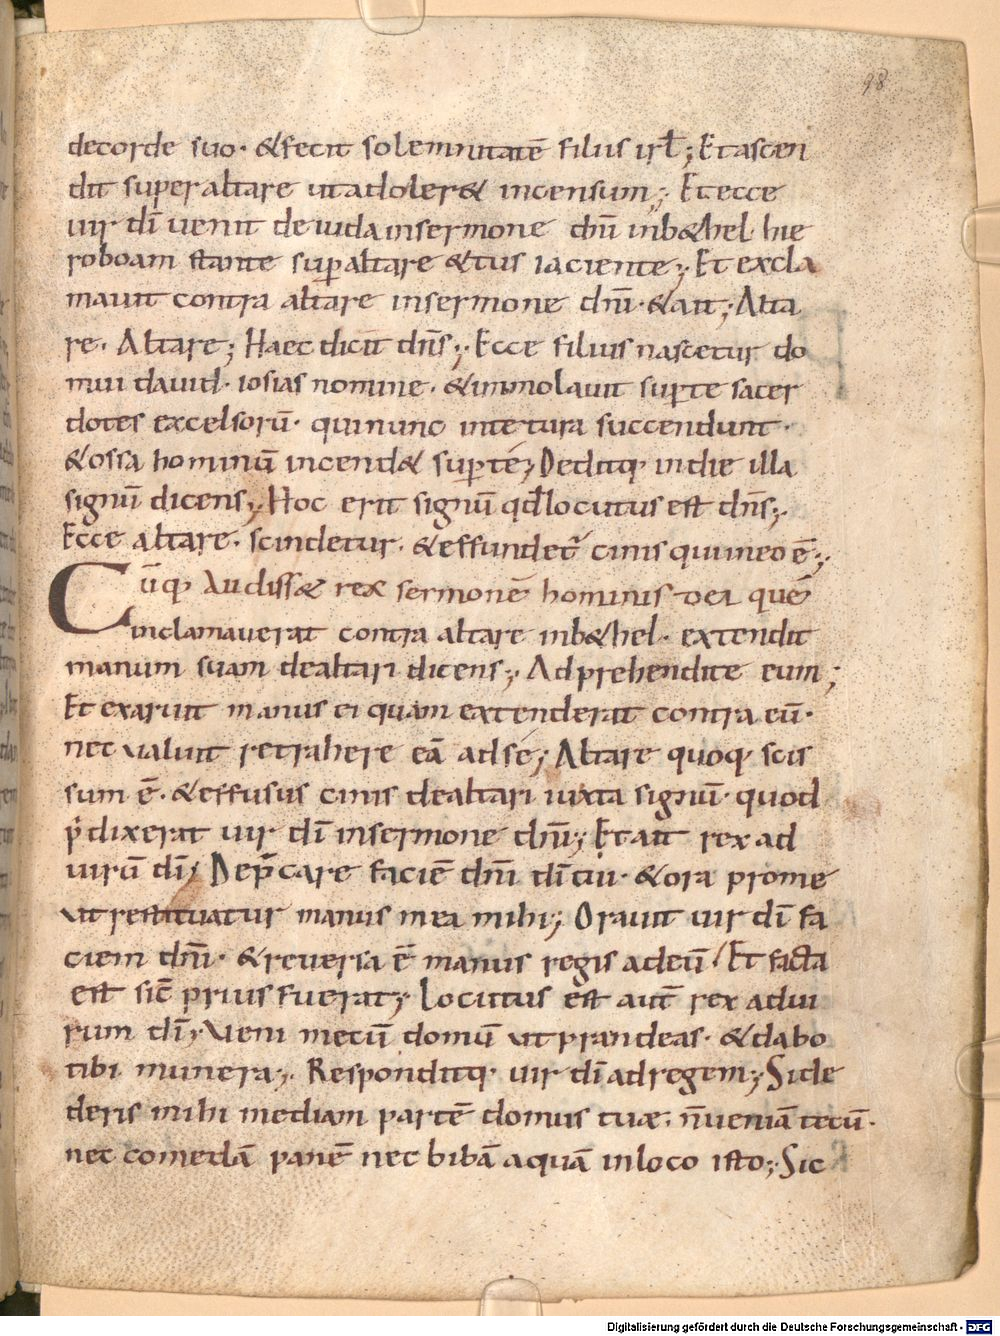 98
decorde suo· &fecit solemnitatē filius isrł; Et ascen
dit super altare ut adoler& incensum; Et ecce
uir dī uenit de iuda insermone dn̄i inb&hel· hie
roboam stante sup altare &tus iaciente; Et excla
mauit contra altare insermone dn̄i· &ait; Alta
re· Altare; Haec dicit dn̄s; Ecce filius nascetur do
mui dauid· iosias nomine· &immolauit sup te sacer
dotes excelsorū· qui nunc inte tura succendunt·
&ossa hominū incend& sup te; Deditq; indie illa
signū dicens; Hoc erit signū qd̄ locutus est dn̄s;
Ecce altare· scindetur· &effundet̄ cinis qui ineo ē;
Cūq; Audiss& rex sermonē hominis dei quē
inclamauerat contra altare inb&hel· extendit
manum suam dealtari dicens; Adprehendite eum;
Et exaruit manus ei quam extenderat contra eū·
nec ualuit retrahere eā ad se; Altare quoq; scis
sum ē· &effusus cinis dealtari iuxta signū· quod
p̄dixerat uir dī insermone dn̄i; Et ait rex ad
uirū dī; Dep̄care faciē dn̄i dī tui· &ora pro me
ut restituatur manus mea mihi; Orauit uir dī fa
ciem dn̄i· &reuersa ē manus regis ad eū; Et facta
est sic̄ prius fuerat; Locutus est aut̄ rex ad ui
rum dī; Ueni mecū domū ut prandeas· &dabo
tibi munera; Responditq; uir dī ad regem; Si de
deris mihi mediam partē domus tuæ· n̄ ueniā tecū·
nec comedā panē nec bibā aquā inloco isto; Sic
Digitalisierung gefördert durch die Deutsche Forschungsgemeinschaft - DFG